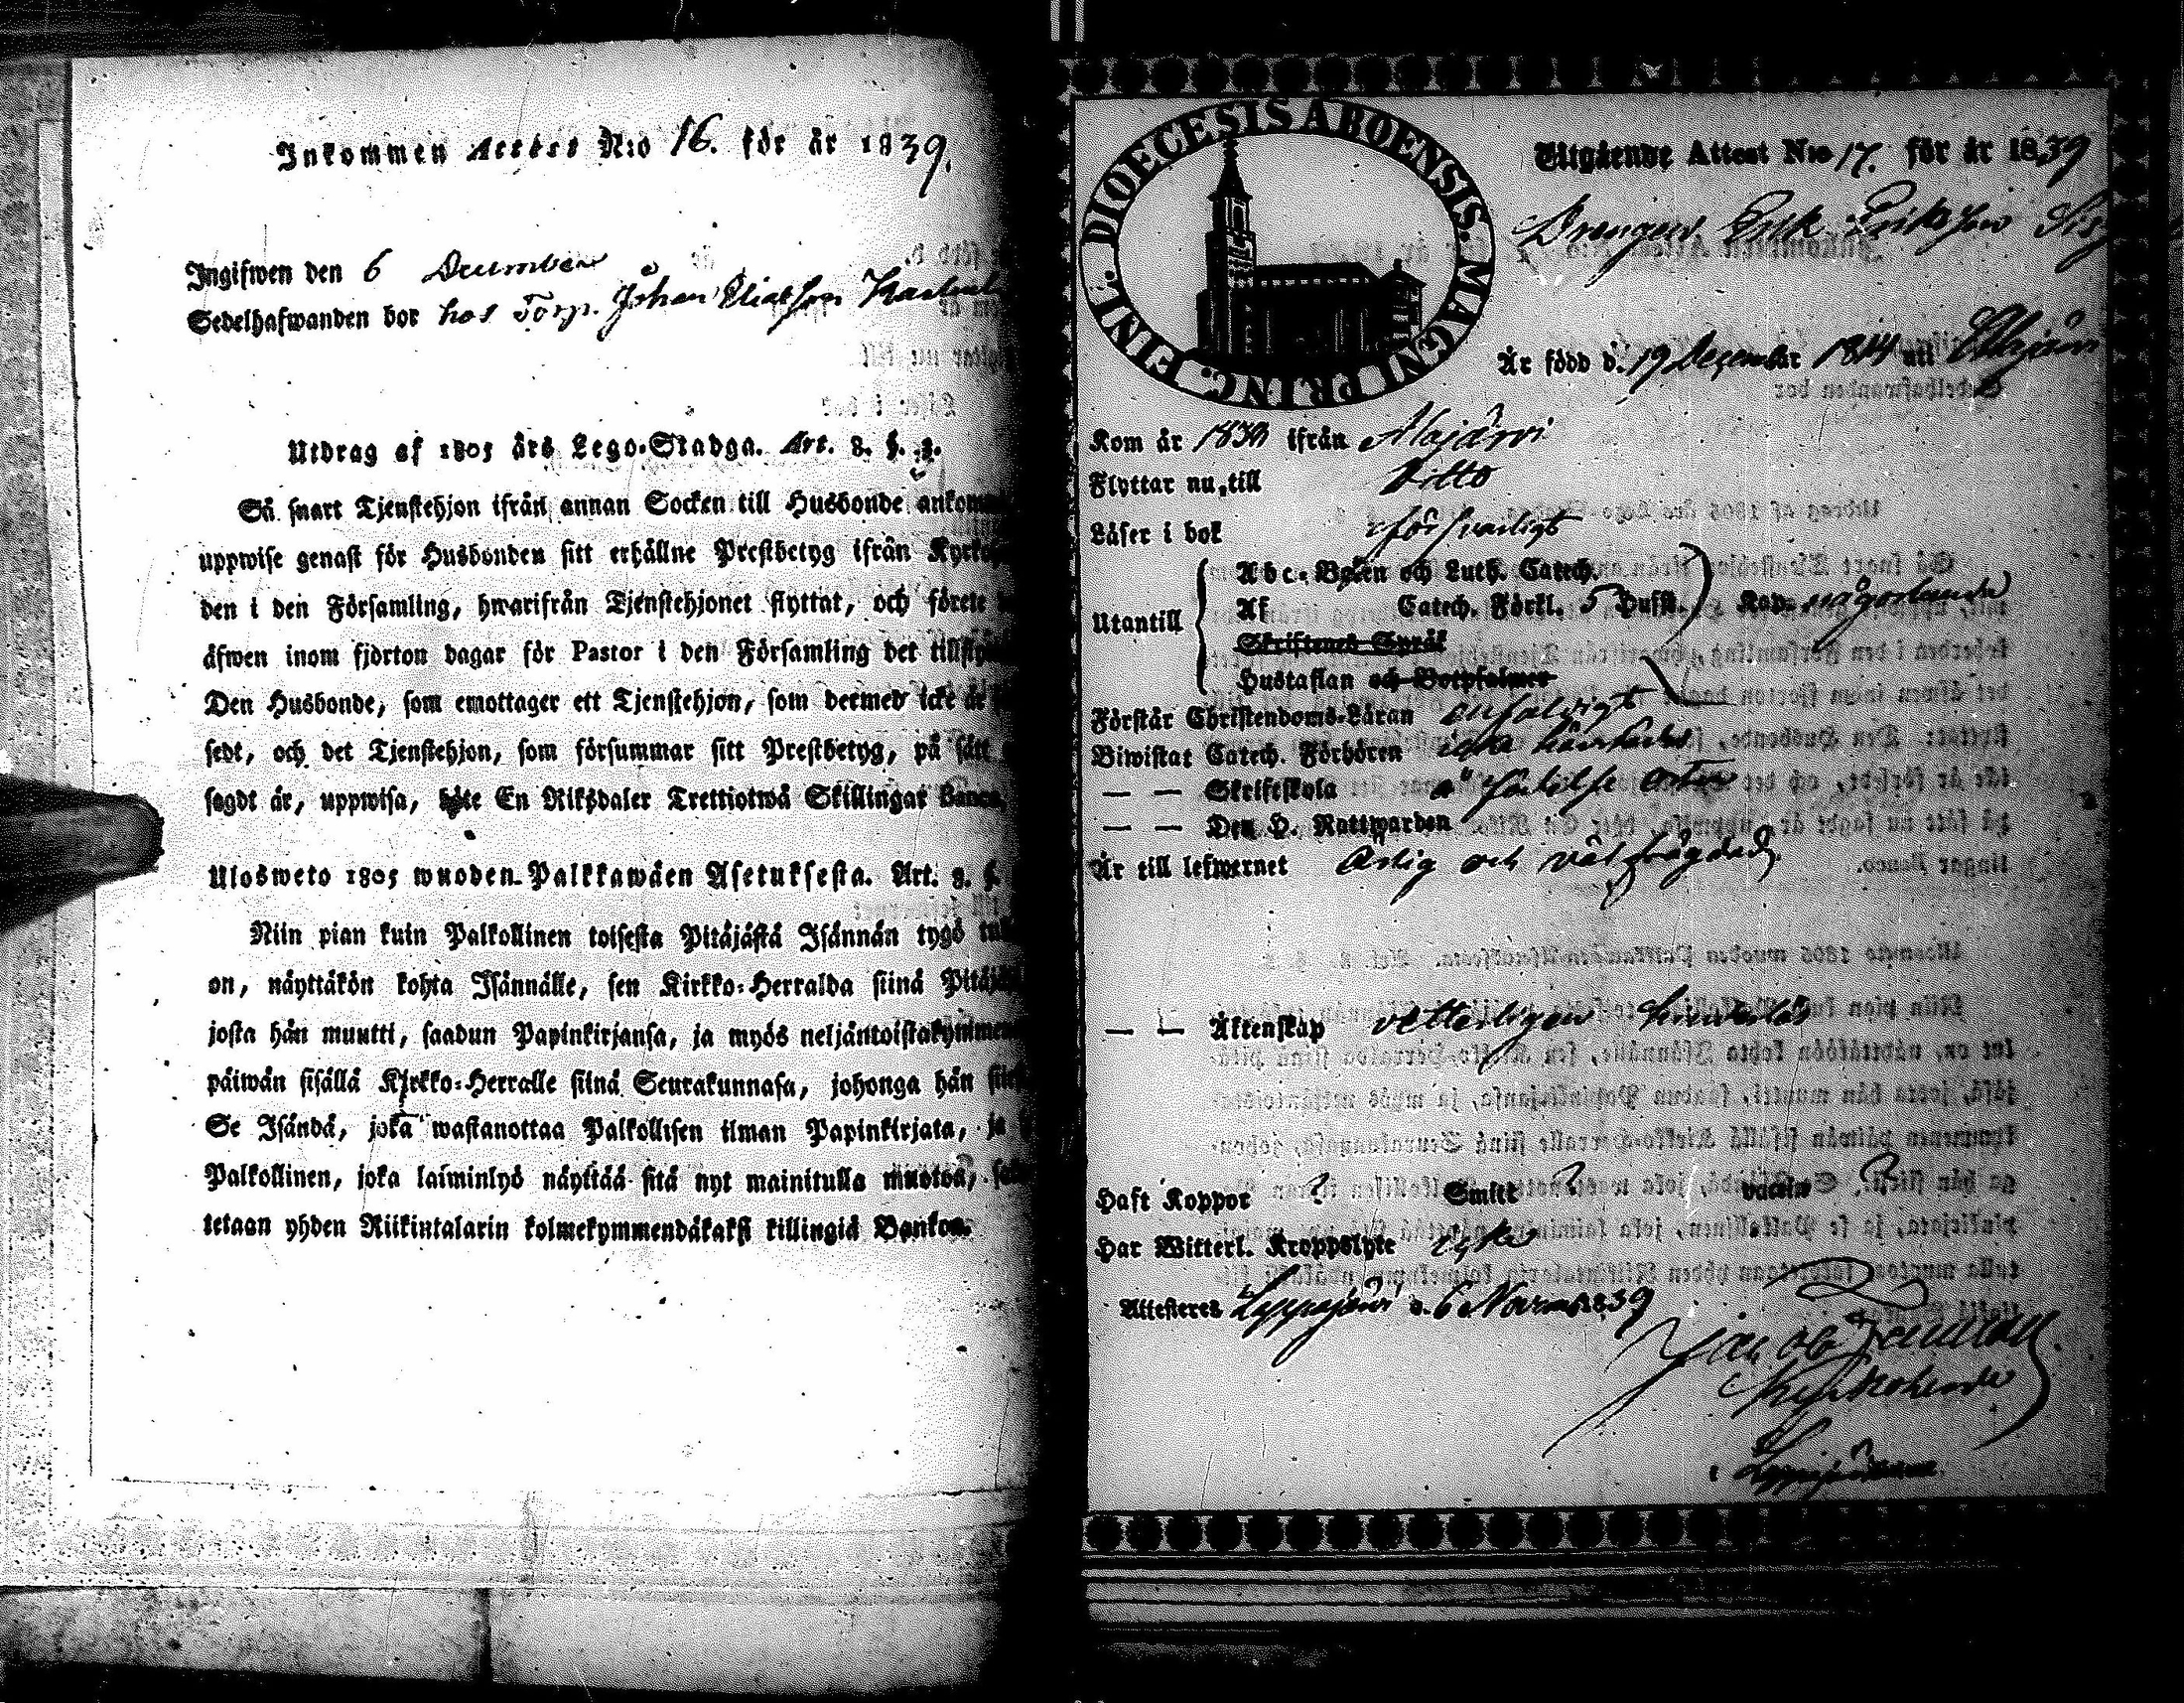 Inkommen Attest N:o 16. för år 1839.
Ingifwen den 6 December
Sedelhafwanden bor hos Torp. Johan Eliasson
Utdrag af 1805 års Lego-Stadga. Art. 8. §. 3.
Så snart Tjenstehjon ifrån annan Socken till Husbonde
uppwise genast för Husbonden sitt erhållne Prestbetyg ifrån
den i den Församling, hwarifrån Tjenstehjonet flyttat, och förete
äfwen inom fjorton dagar för Pastor i den Församling det
Den Husbonde, som emottager ett Tjenstehjon, som dermed icke är
sedt, och det Tjenstehjon, som försummar sitt Prestbetyg, på sätt
sagdt är, uppwisa, böte En Riksdaler Trettiotwå Skillingar Banco.
Ulosweto 1805 wuoden Palkkawäen Asetuksesta. Art. 8. §.
Niin pian kuin Palkollinen toisesta Pitäjästä Isännän tygö
on, näyttäkön kohta Isännälle, sen Kirkko-Herralda siinä
josta hän muutti, saadun Papinkirjansa, ja myös
päiwän sisällä Kirkko-Herralle siinä Seurakunnasa, johonga hän
Se Isändä, joka wastanottaa Palkollisen ilman Papinkirjata, ja
Palkollinen, joka laiminlyö näyttää sitä nyt mainitulla muotoa,
tetaan yhden Riikintalarin kolmekymmendäkaksi killingiä Bankoa.
DIOECESIS ABOENSIS. MAGNI PRINC. FINL.
Utgående Attest N:o 17. för år 1839
Drengen Erik Eriksson
Är född d. 19 December 1814 uti
Kom år 1838 ifrån Alajärvi
Flyttar nu till Ditto
Läser i bok försvarligt
Utantill
Abc-Boken och Luth. Catech.
Af Catech. Förkl. 5 Hufst. Kap. någorlunda
Skriftenes Språk
Hustaflan och Botpsalmer
Förstår Christendoms-Läran enfaldigt
Biwistat Catech. Förhören
— — Skriftskola
— — Den H. Nattwarden
Är till lefwernet ärlig och väl frägdad
— — Äktenskap vetterligen hinderlös
Haft Koppor ? Smitt ? vaccin ?
Har Witterl. Kroppslyte
Attesteras Lappajärvi d. 6 Novemb. 1839
Jacob
Kyrkoherde
i